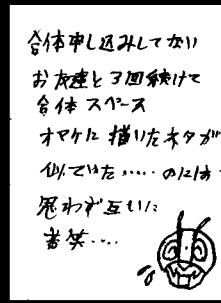 合体申し込みしてない
お友達と3回続けて
合体スペース
オマケに描いたネタが
似ていた.....のには
思わず互いに
苦笑....